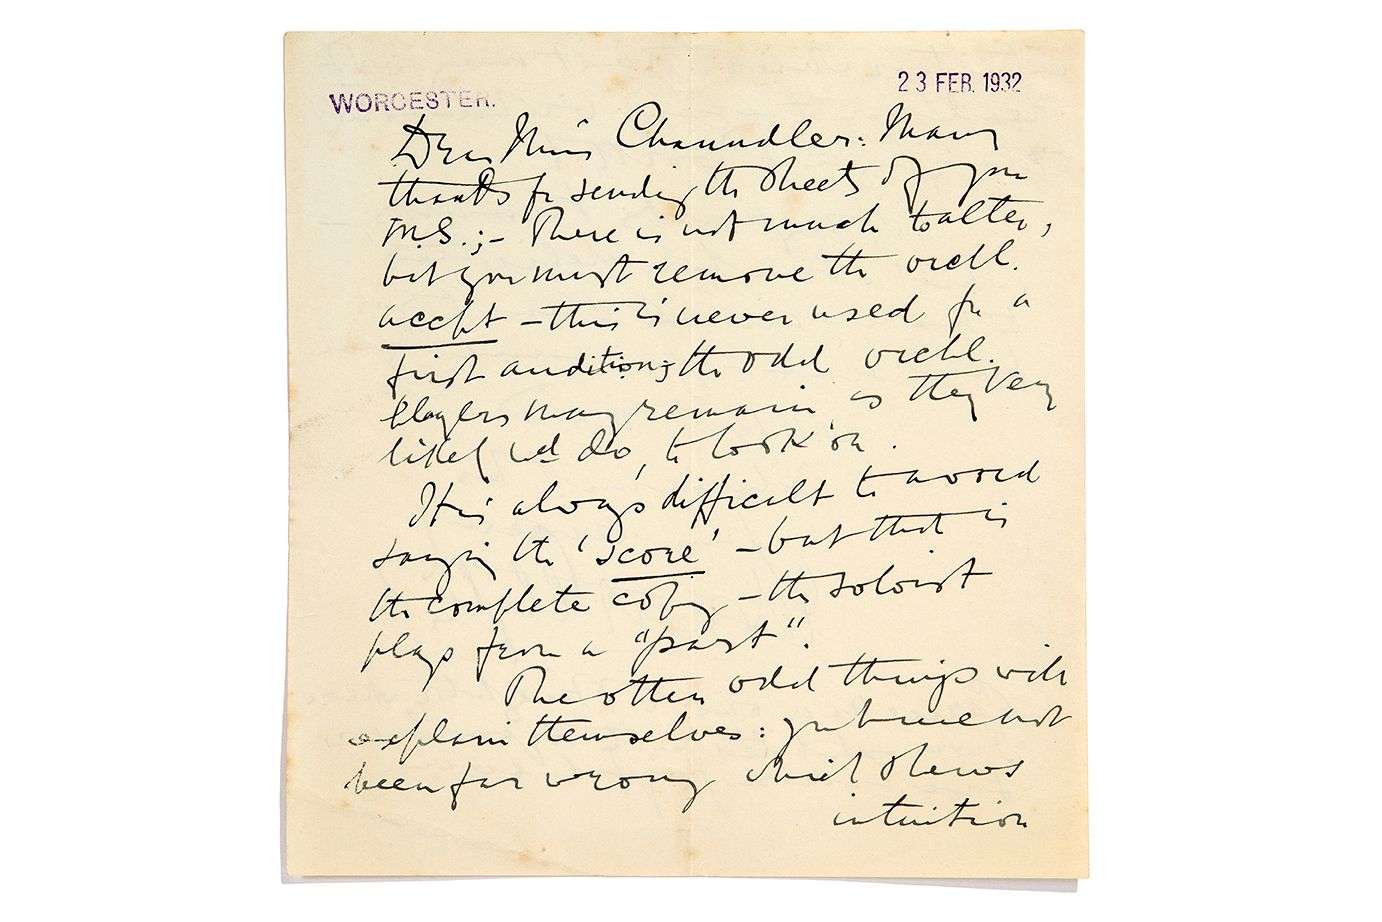 WORCESTER.
23 FEB. 1932
Dear Miss Chaundler: Many
thanks for sending the sheets of your
M.S.;– There is not much to alter,
but you must remove the orchl.
accpt – this is never used for a
first audition; the odd orchl.
players may remain, as they very
likely wd do, to 'look on'.
It is always difficult to avoid
saying the 'score' – but that is
the complete copy – the soloist
plays from a "part".
The other odd things will
explain themselves: you have not
been far wrong which shews
intuition